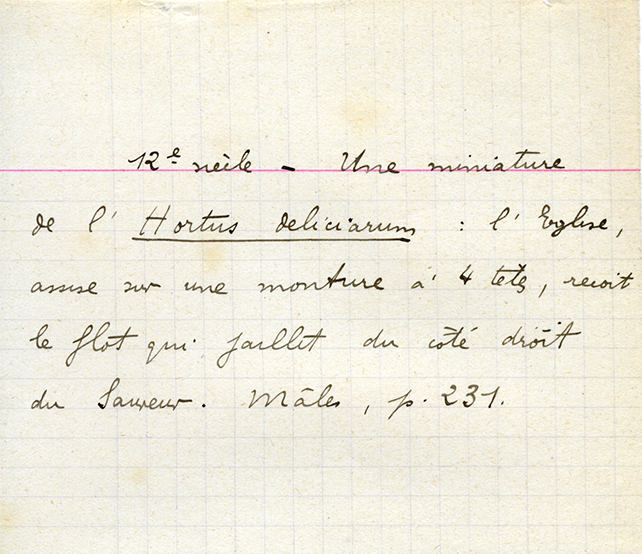 12e siècle - Une miniature
de l' Hortus deliciarum : l' Eglise,
assise sur une monture à 4 têtes, reçoit
le flot qui jaillit du côté droit
du Sauveur. Mâles, p. 231.